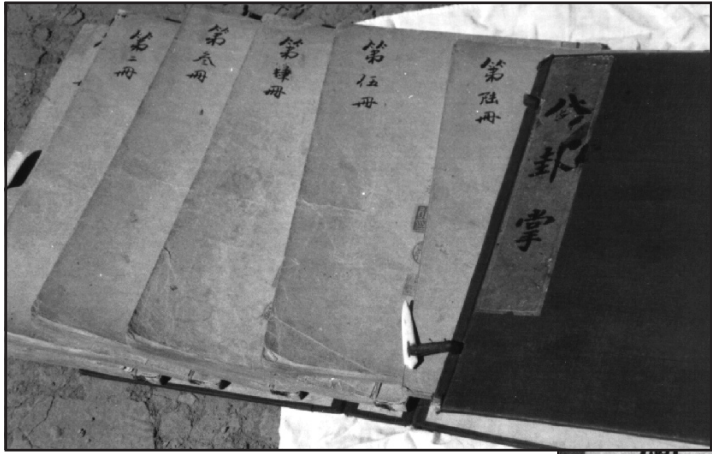 第二冊
第叁冊
第肆冊
第伍冊
第陸冊
掌